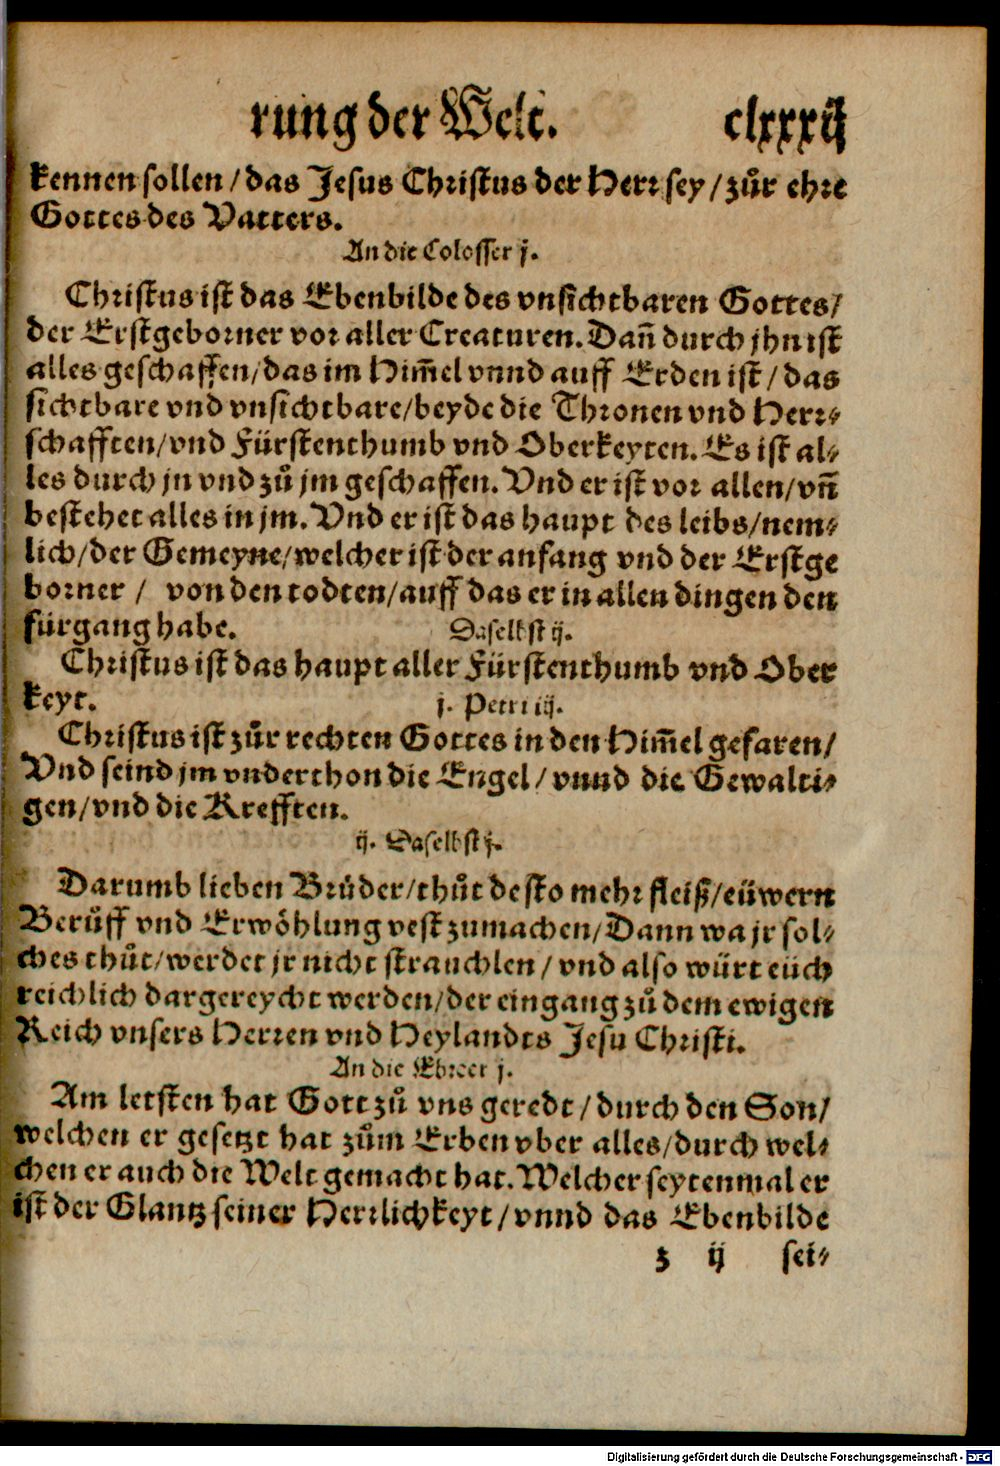 rung der Welt. clxxxij
kennen sollen/das Jesus Christus der Herr sey/zůr ehre
Gottes des Vatters.
An die Colosser j.
Christus ist das Ebenbilde des vnsichtbaren Gottes/
der Erstgeborner vor aller Creaturen. Dañ durch jhn ist
alles geschaffen/das im Him̃el vnnd auff Erden ist/das
sichtbare vnd vnsichtbare/beyde die Thronen vnd Herr⸗
schafften/vnd Fürstenthumb vnd Oberkeyten. Es ist al⸗
les durch jn vnd zů jm geschaffen. Vnd er ist vor allen/vñ
bestehet alles in jm. Vnd er ist das haupt des leibs/nem⸗
lich/der Gemeyne/welcher ist der anfang vnd der Erstge
borner / von den todten/auff das er in allen dingen den
fürgang habe. Daselbst ij.
Christus ist das haupt aller Fürstenthumb vnd Ober
keyt. j. Petri iij.
Christus ist zůr rechten Gottes in den Him̃el gefaren/
Vnd seind jm vnderthon die Engel/vnnd die Gewalti⸗
gen/vnd die Krefften.
ij. Daselbst j.
Darumb lieben Brüder/thůt desto mehr fleiß/eüwern
Berůff vnd Erwöhlung vest zumachen/Dann wa jr sol⸗
ches thůt/werdet jr nicht strauchlen/vnd also würt eüch
reichlich dargereycht werden/der eingang zů dem ewigen
Reich vnsers Herren vnd Heylandts Jesu Christi.
An die Ebreer j.
Am letsten hat Gott zů vns geredt/durch den Son/
welchen er gesetzt hat zům Erben vber alles/durch wel⸗
chen er auch die Welt gemacht hat. Welcher seytenmal er
ist der Glantz seiner Herrlichkeyt/vnnd das Ebenbilde
z ij sei⸗
Digitalisierung gefördert durch die Deutsche Forschungsgemeinschaft - DFG